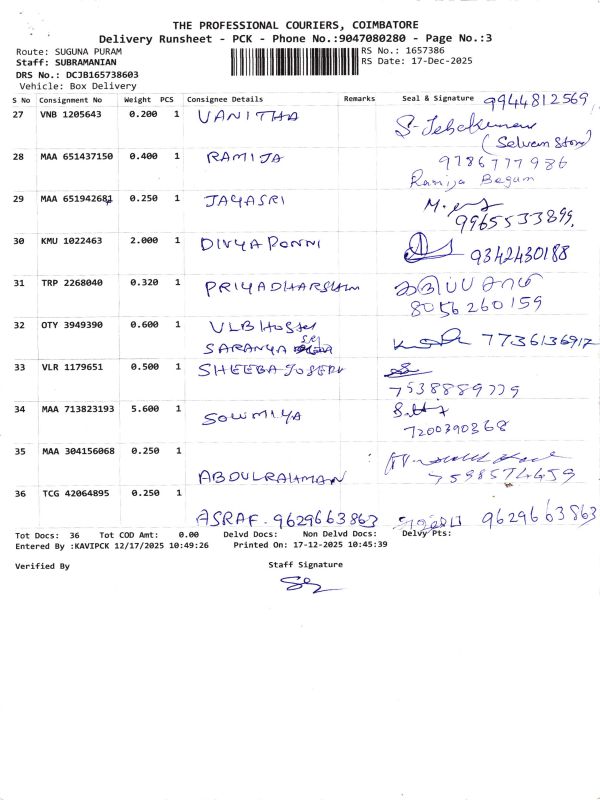 THE PROFESSIONAL COURIERS, COIMBATORE
Delivery Runsheet - PCK - Phone No.:9047080280 - Page No.:3
Route: SUGUNA PURAM RS No.: 1657386
Staff: SUBRAMANIAN RS Date: 17-Dec-2025
DRS No.: DCJB165738603
Vehicle: Box Delivery
S No Consignment No Weight PCS Consignee Details Remarks Seal & Signature 9944812569
27 VNB 1205643 0.200 1 VANITHA
(Selvam Store)
28 MAA 651437150 0.400 1 RAMIJA 9786777986
Ramija Begum
29 MAA 651942681 0.250 1 JAYASRI
9965533899
30 KMU 1022463 2.000 1 DIVYA PONNI 9342430188
31 TRP 2268040 0.320 1 PRIYADHARSHINI
8056260159
32 OTY 3949390 0.600 1 VLB Hostel
SARANYA SRI 7736136917
33 VLR 1179651 0.500 1 SHEEBA JOSEPH
7538889779
34 MAA 713823193 5.600 1 SOWMIYA
7200390368
35 MAA 304156068 0.250 1
ABDULRAHMAN 7598574459
36 TCG 42064895 0.250 1
ASRAF. 9629663863 9629663863
Tot Docs: 36 Tot COD Amt: 0.00 Delvd Docs: Non Delvd Docs: Delvy Pts:
Entered By :KAVIPCK 12/17/2025 10:49:26 Printed On: 17-12-2025 10:45:39
Verified By Staff Signature